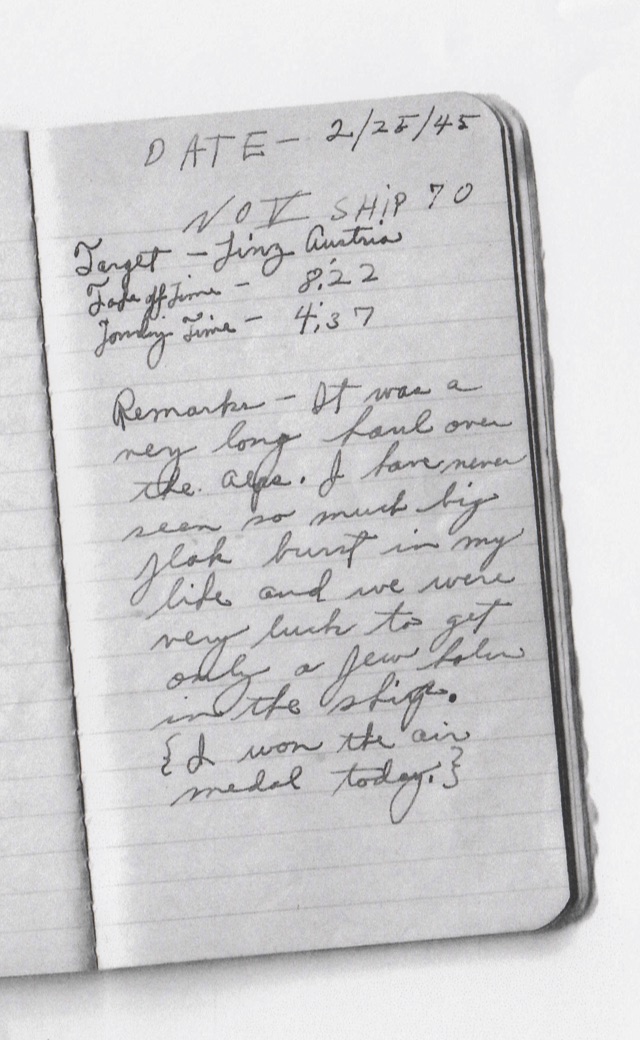 DATE - 2/25/45
NO V SHIP 70
Target - Linz Austria
Take off Time - 8:22
Landing Time - 4:37
Remarks - It was a
very long haul over
the alps. I have never
seen so much big
flak burst in my
life and we were
very luck to get
only a few holes
in the ship.
{I won the air
medal today.}